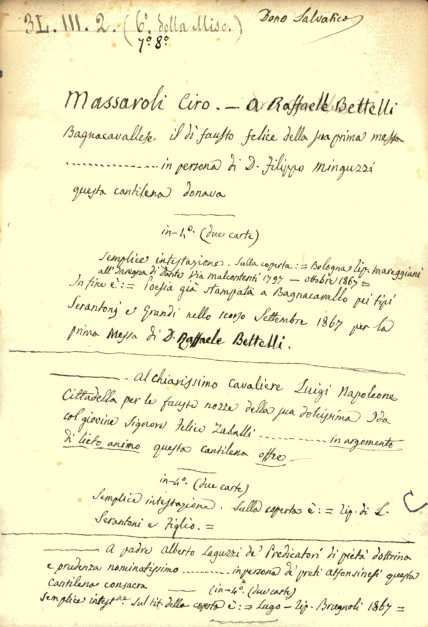 3L. III. 2. (6º. della Misc.)
7º 8º
Dono Salvatico
Massaroli Ciro. — A Raffaele Bettelli
Bagnacavallese il dì fausto felice della sua prima messa
.................. in persona di D. Filippo Minguzzi
questa cantilena donava
in-4º. (due carte)
Semplice intestazione. Sulla coperta := Bologna tip. Mareggiani
all'Insegna di Dante Via Malcontenti 1797 — ottobre 1867 =
In fine è := Poesia già stampata a Bagnacavallo pei tipi
Serantoni e Grandi nello scorso Settembre 1867 per la
prima Messa di D. Raffaele Bettelli.
———. Al chiarissimo Cavaliere Luigi Napoleone
Cittadella per le fauste nozze della sua dolcissima Ida
col giovine Signore Felice Zaballi .................. in argomento
di lieto animo questa cantilena offre —
in-4º. (due carte)
Semplice intestazione. Sulla coperta è := tip. di L.
Serantoni e Figlio. =
——— A padre Alberto Laguzzi de' Predicatori di pietà dottrina
e prudenza nominatissimo .......... in persona de' preti alfonsinesi questa
Cantilena consacra ——— (in-4º. (due carte)
Semplice intest.ne Sul tit. della coperta è := Lugo — tip. Brugnoli 1867 =